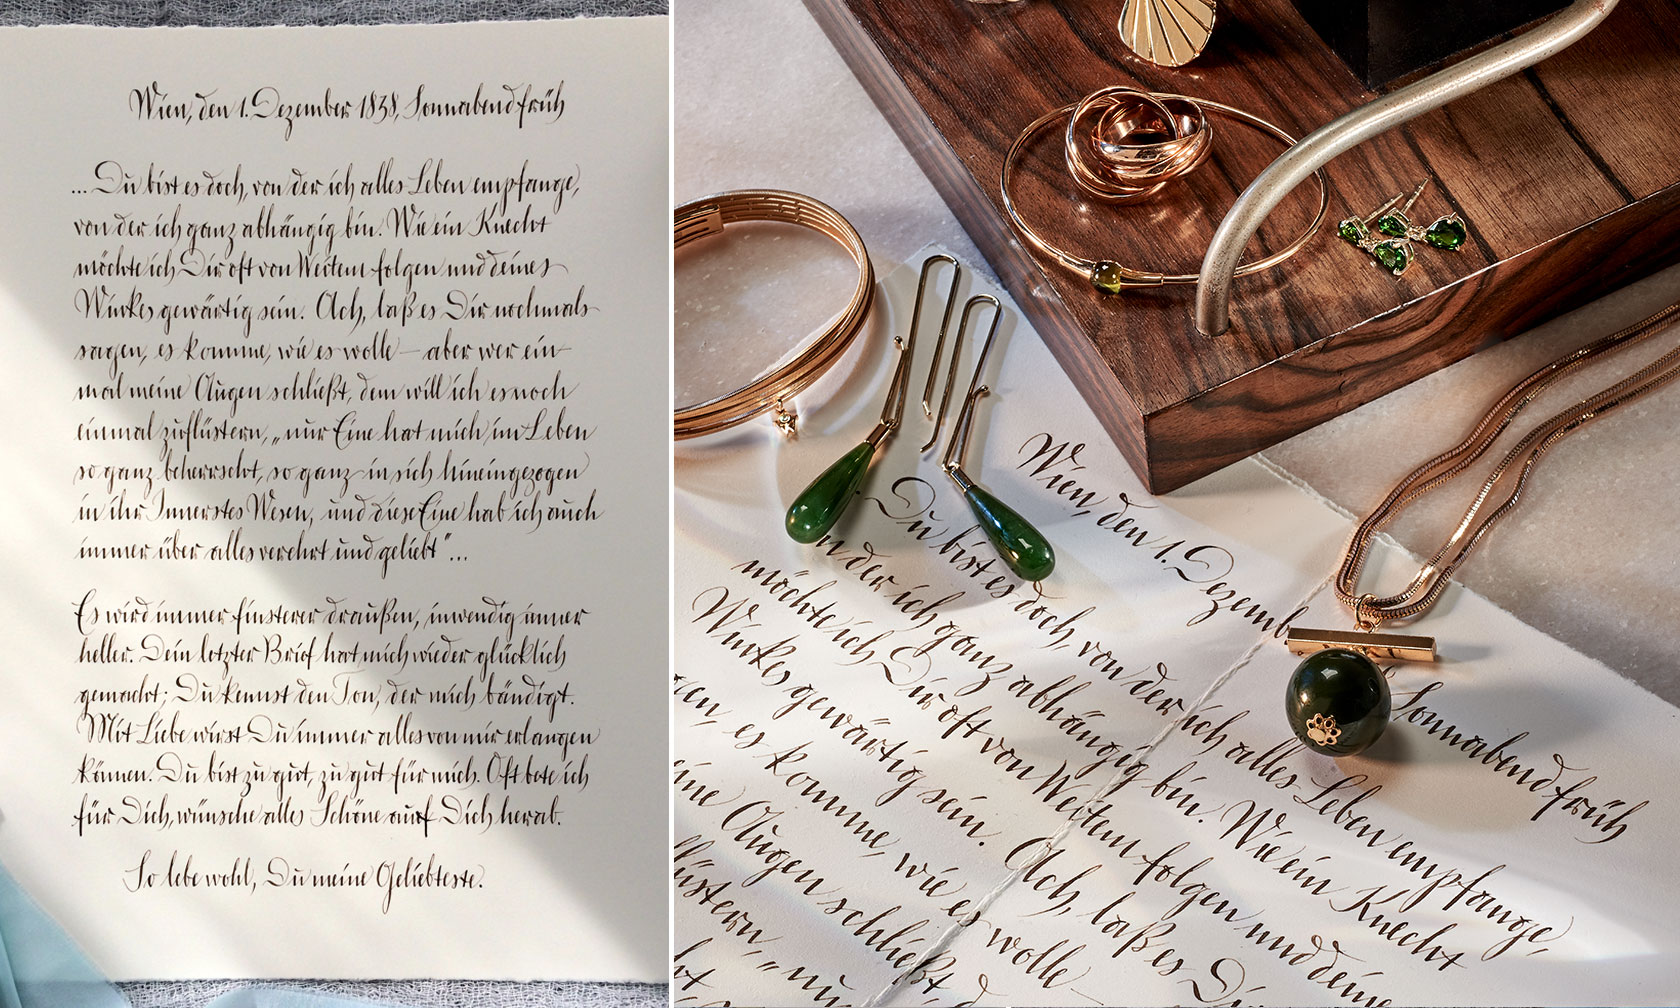 Wien, den 1. Dezember 1838, Sonnabend früh
... Du bist es doch, von der ich alles Leben empfange,
von der ich ganz abhängig bin. Wie ein Knecht
möchte ich Dir oft von Weitem folgen und deines
Winkes gewärtig sein. Ach, laß es Dir nochmals
sagen, es komme, wie es wolle – aber wer ein-
mal meine Augen schließt, dem will ich es noch
einmal zuflüstern, „nur Eine hat mich im Leben
so ganz beherrscht, so ganz in sich hineingezogen
in ihr Innerstes Wesen, und diese Eine hab ich auch
immer über alles verehrt und geliebt“...
Es wird immer finsterer draußen, inwendig immer
heller. Dein letzter Brief hat mich wieder glücklich
gemacht; Du kennst den Ton, der mich bändigt.
Mit Liebe wirst Du immer alles von mir erlangen
können. Du bist zu gut, zu gut für mich. Oft bete ich
für Dich, wünsche alles Schöne auf Dich herab.
So lebe wohl, Du meine Geliebteste.
Wien, den 1. Dezemb Sonnabend früh
Du bist es doch, von der ich alles Leben empfange,
n der ich ganz abhängig bin. Wie ein Knecht
möchte ich Dir oft von Weitem folgen und deines
Winkes gewärtig sein. Ach, laß es Dir
gen, es komme, wie es wolle –
ine Augen schließt, d
lüstern, „nu